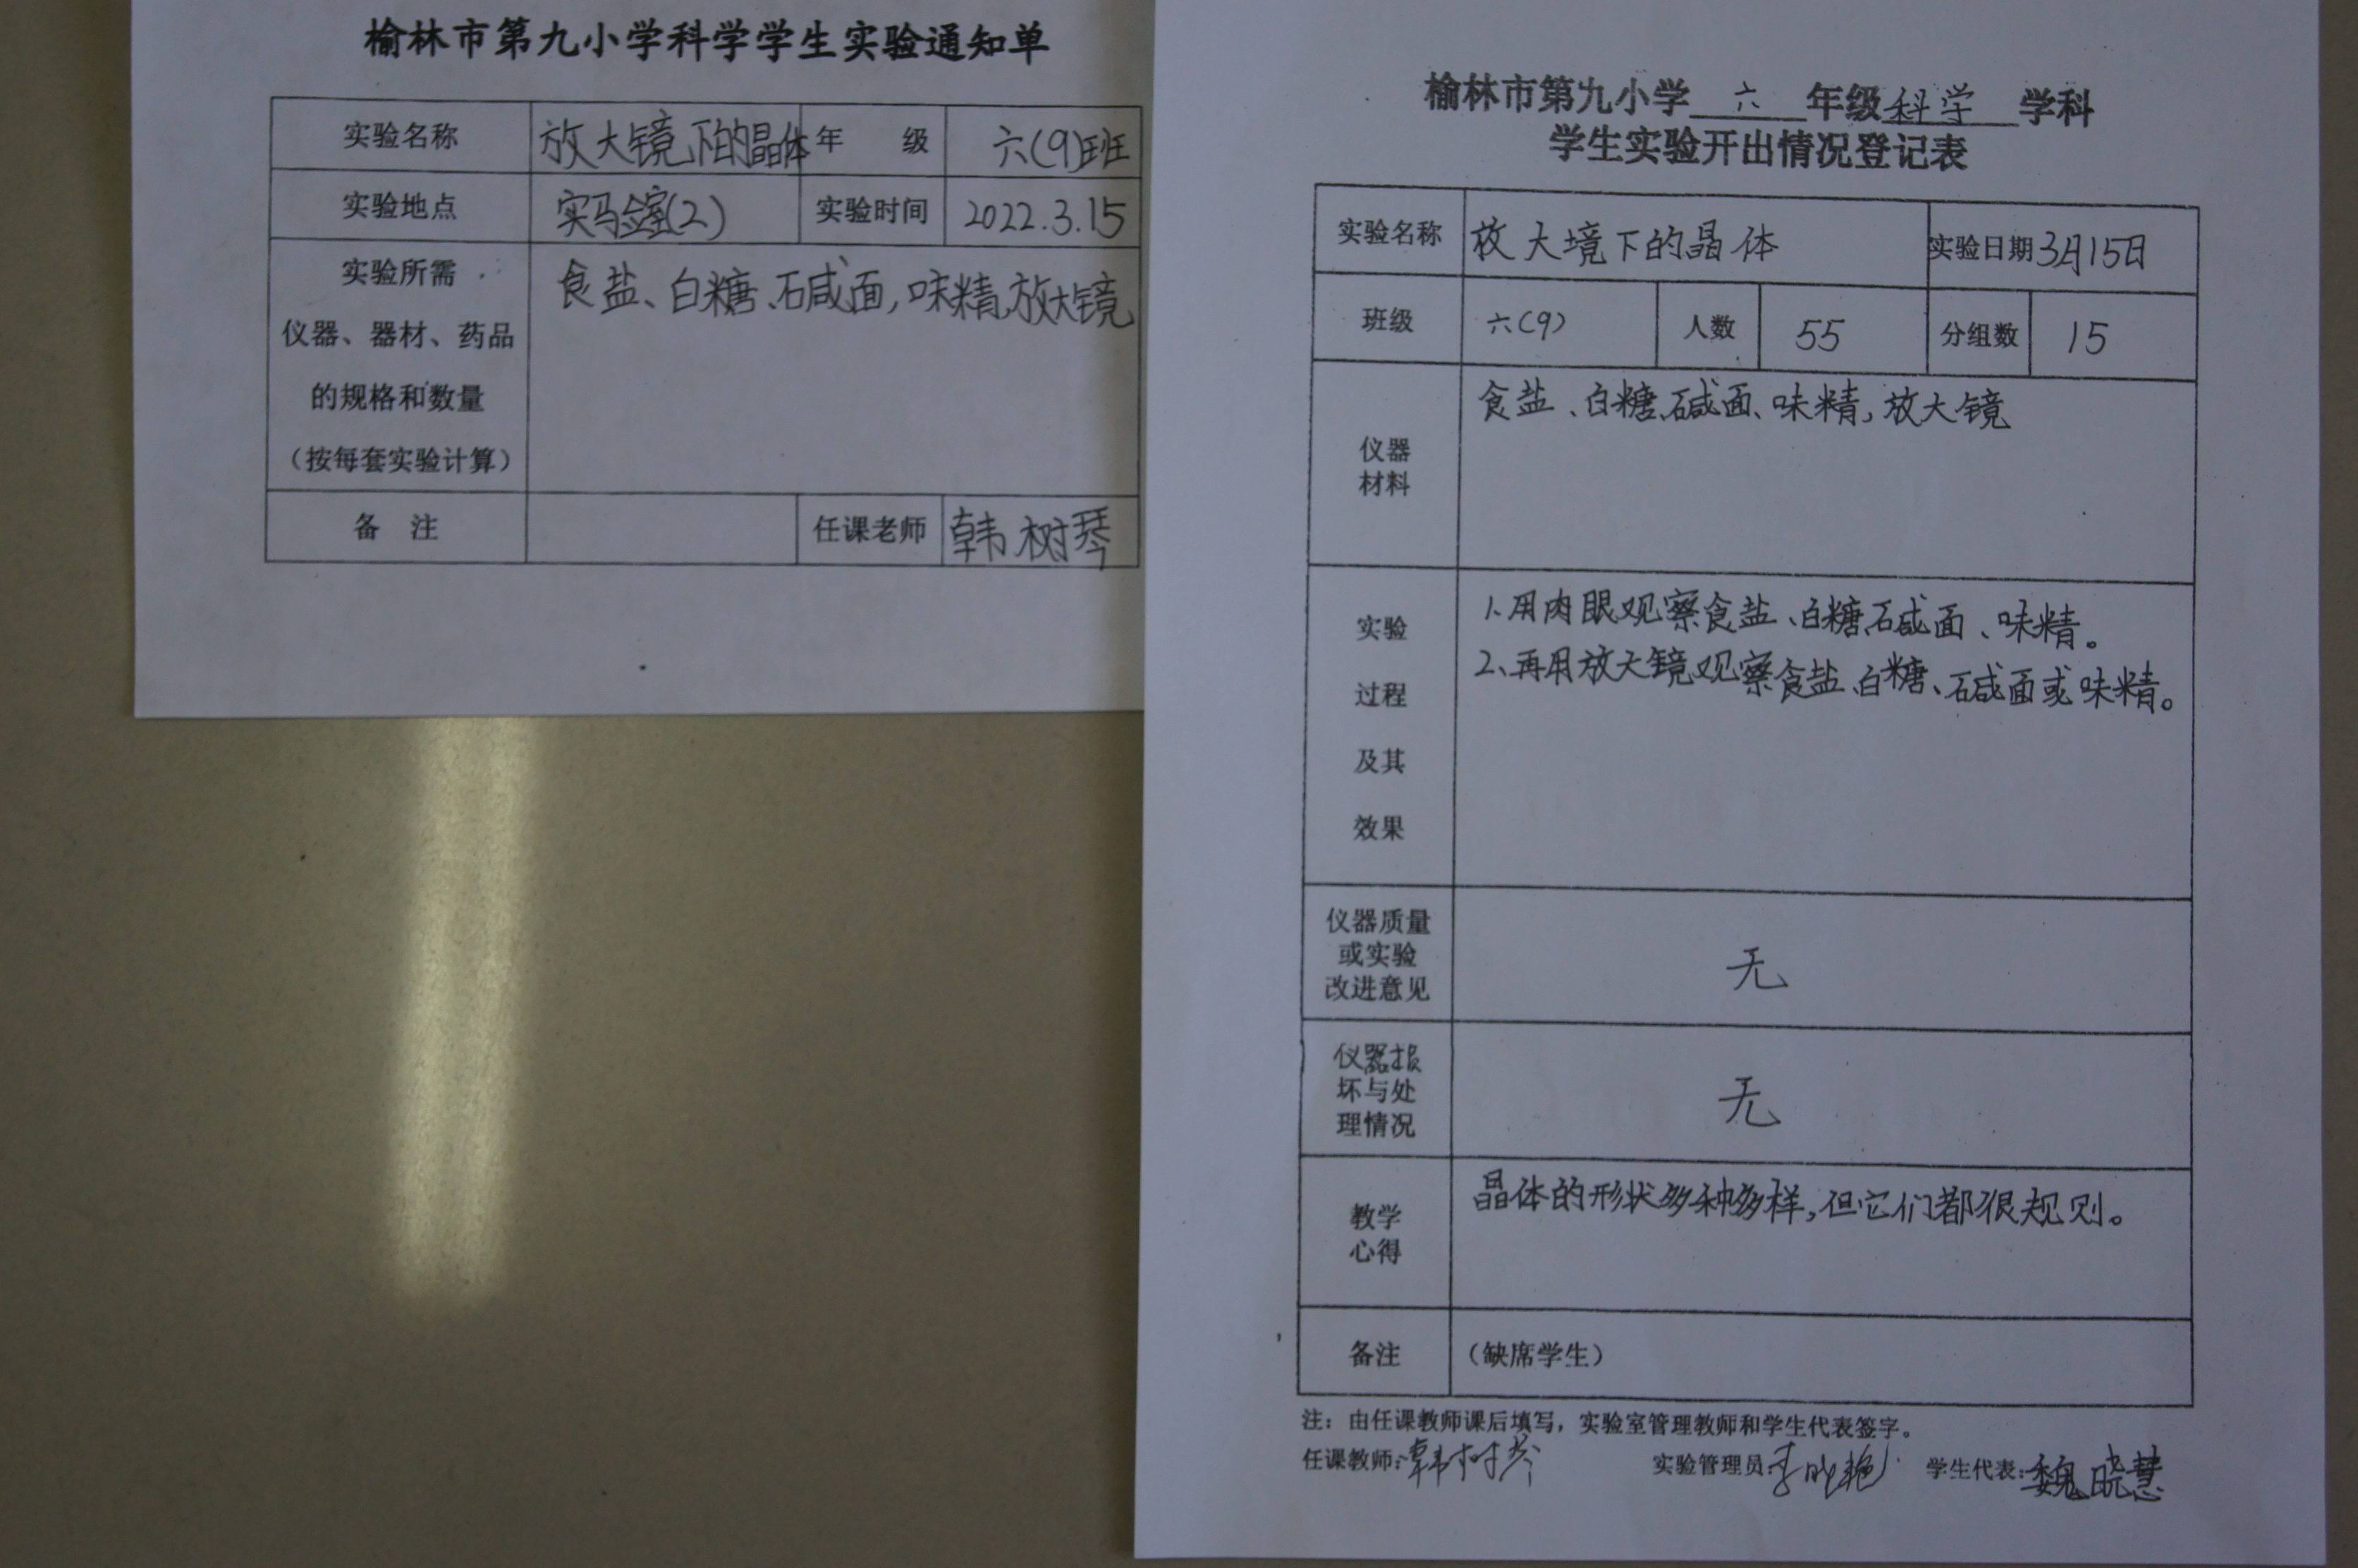 榆林市第九小学科学学生实验通知单
实验名称 放大镜下的晶体 年 级 六(9)班
实验地点 实验室(2) 实验时间 2022.3.15
实验所需
仪器、器材、药品
的规格和数量
（按每套实验计算）
食盐、白糖、碱面,味精,放大镜
备 注 任课老师 韩树琴
榆林市第九小学 六 年级 科学 学科
学生实验开出情况登记表
实验名称 放大境下的晶体 实验日期 3月15日
班级 六(9) 人数 55 分组数 15
仪器
材料
食盐、白糖、碱面、味精,放大镜
实验
过程
及其
效果
1.用肉眼观察食盐、白糖、碱面、味精。
2、再用放大镜观察食盐、白糖、碱面或味精。
仪器质量
或实验
改进意见
无
仪器损
坏与处
理情况
无
教学
心得
晶体的形状多种多样,但它们都很规则。
备注 （缺席学生）
注：由任课教师课后填写，实验室管理教师和学生代表签字。
任课教师:韩树琴 实验管理员 学生代表:魏晓慧